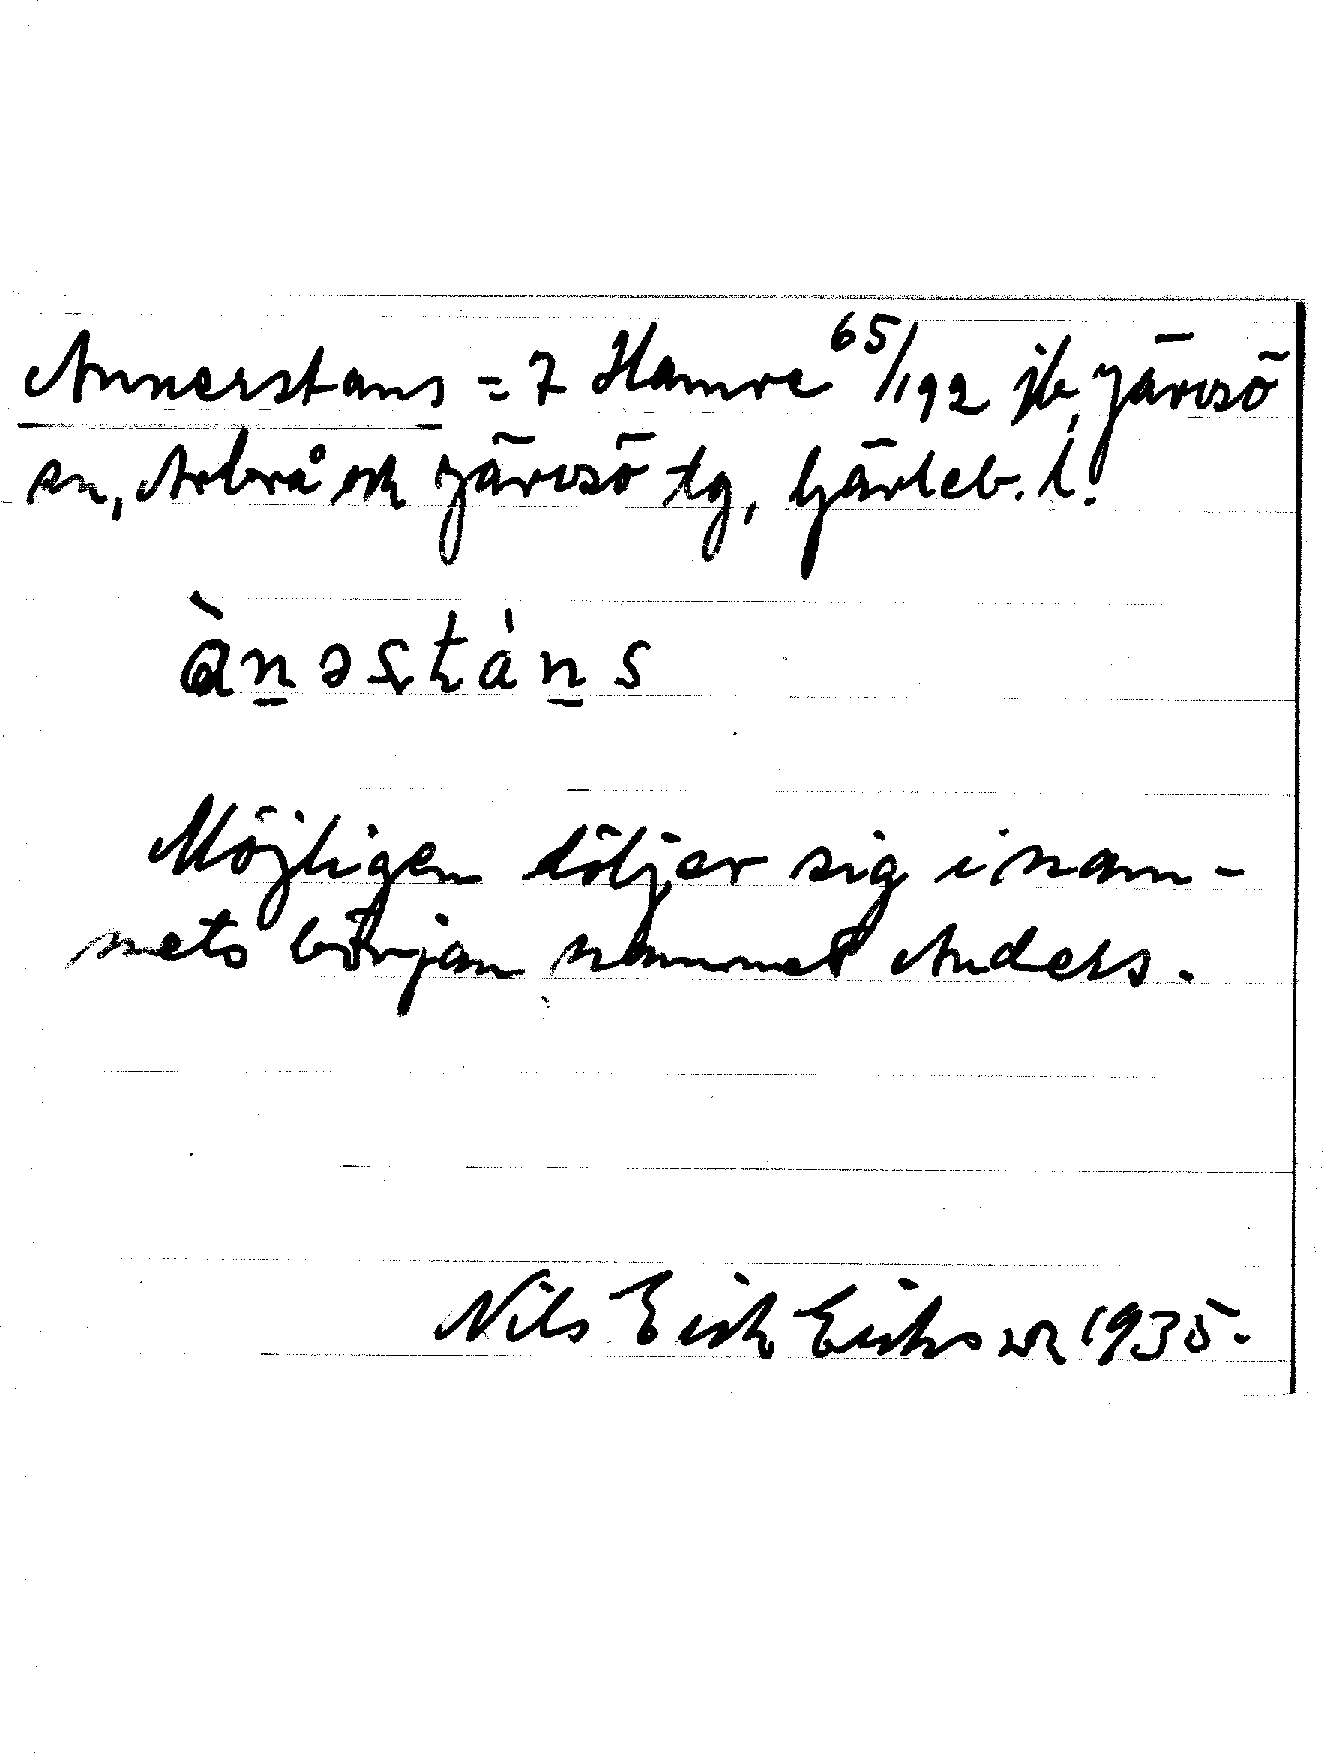 Annerstans = 7 Hamre 65/192 jb, Järvsö
sn, Arbrå och Järvsö tg, Gävleb. l.
ànəstáns
Möjligen döljer sig i nam-
nets början namnet Anders.
Nils Erik Eriksson 1935.